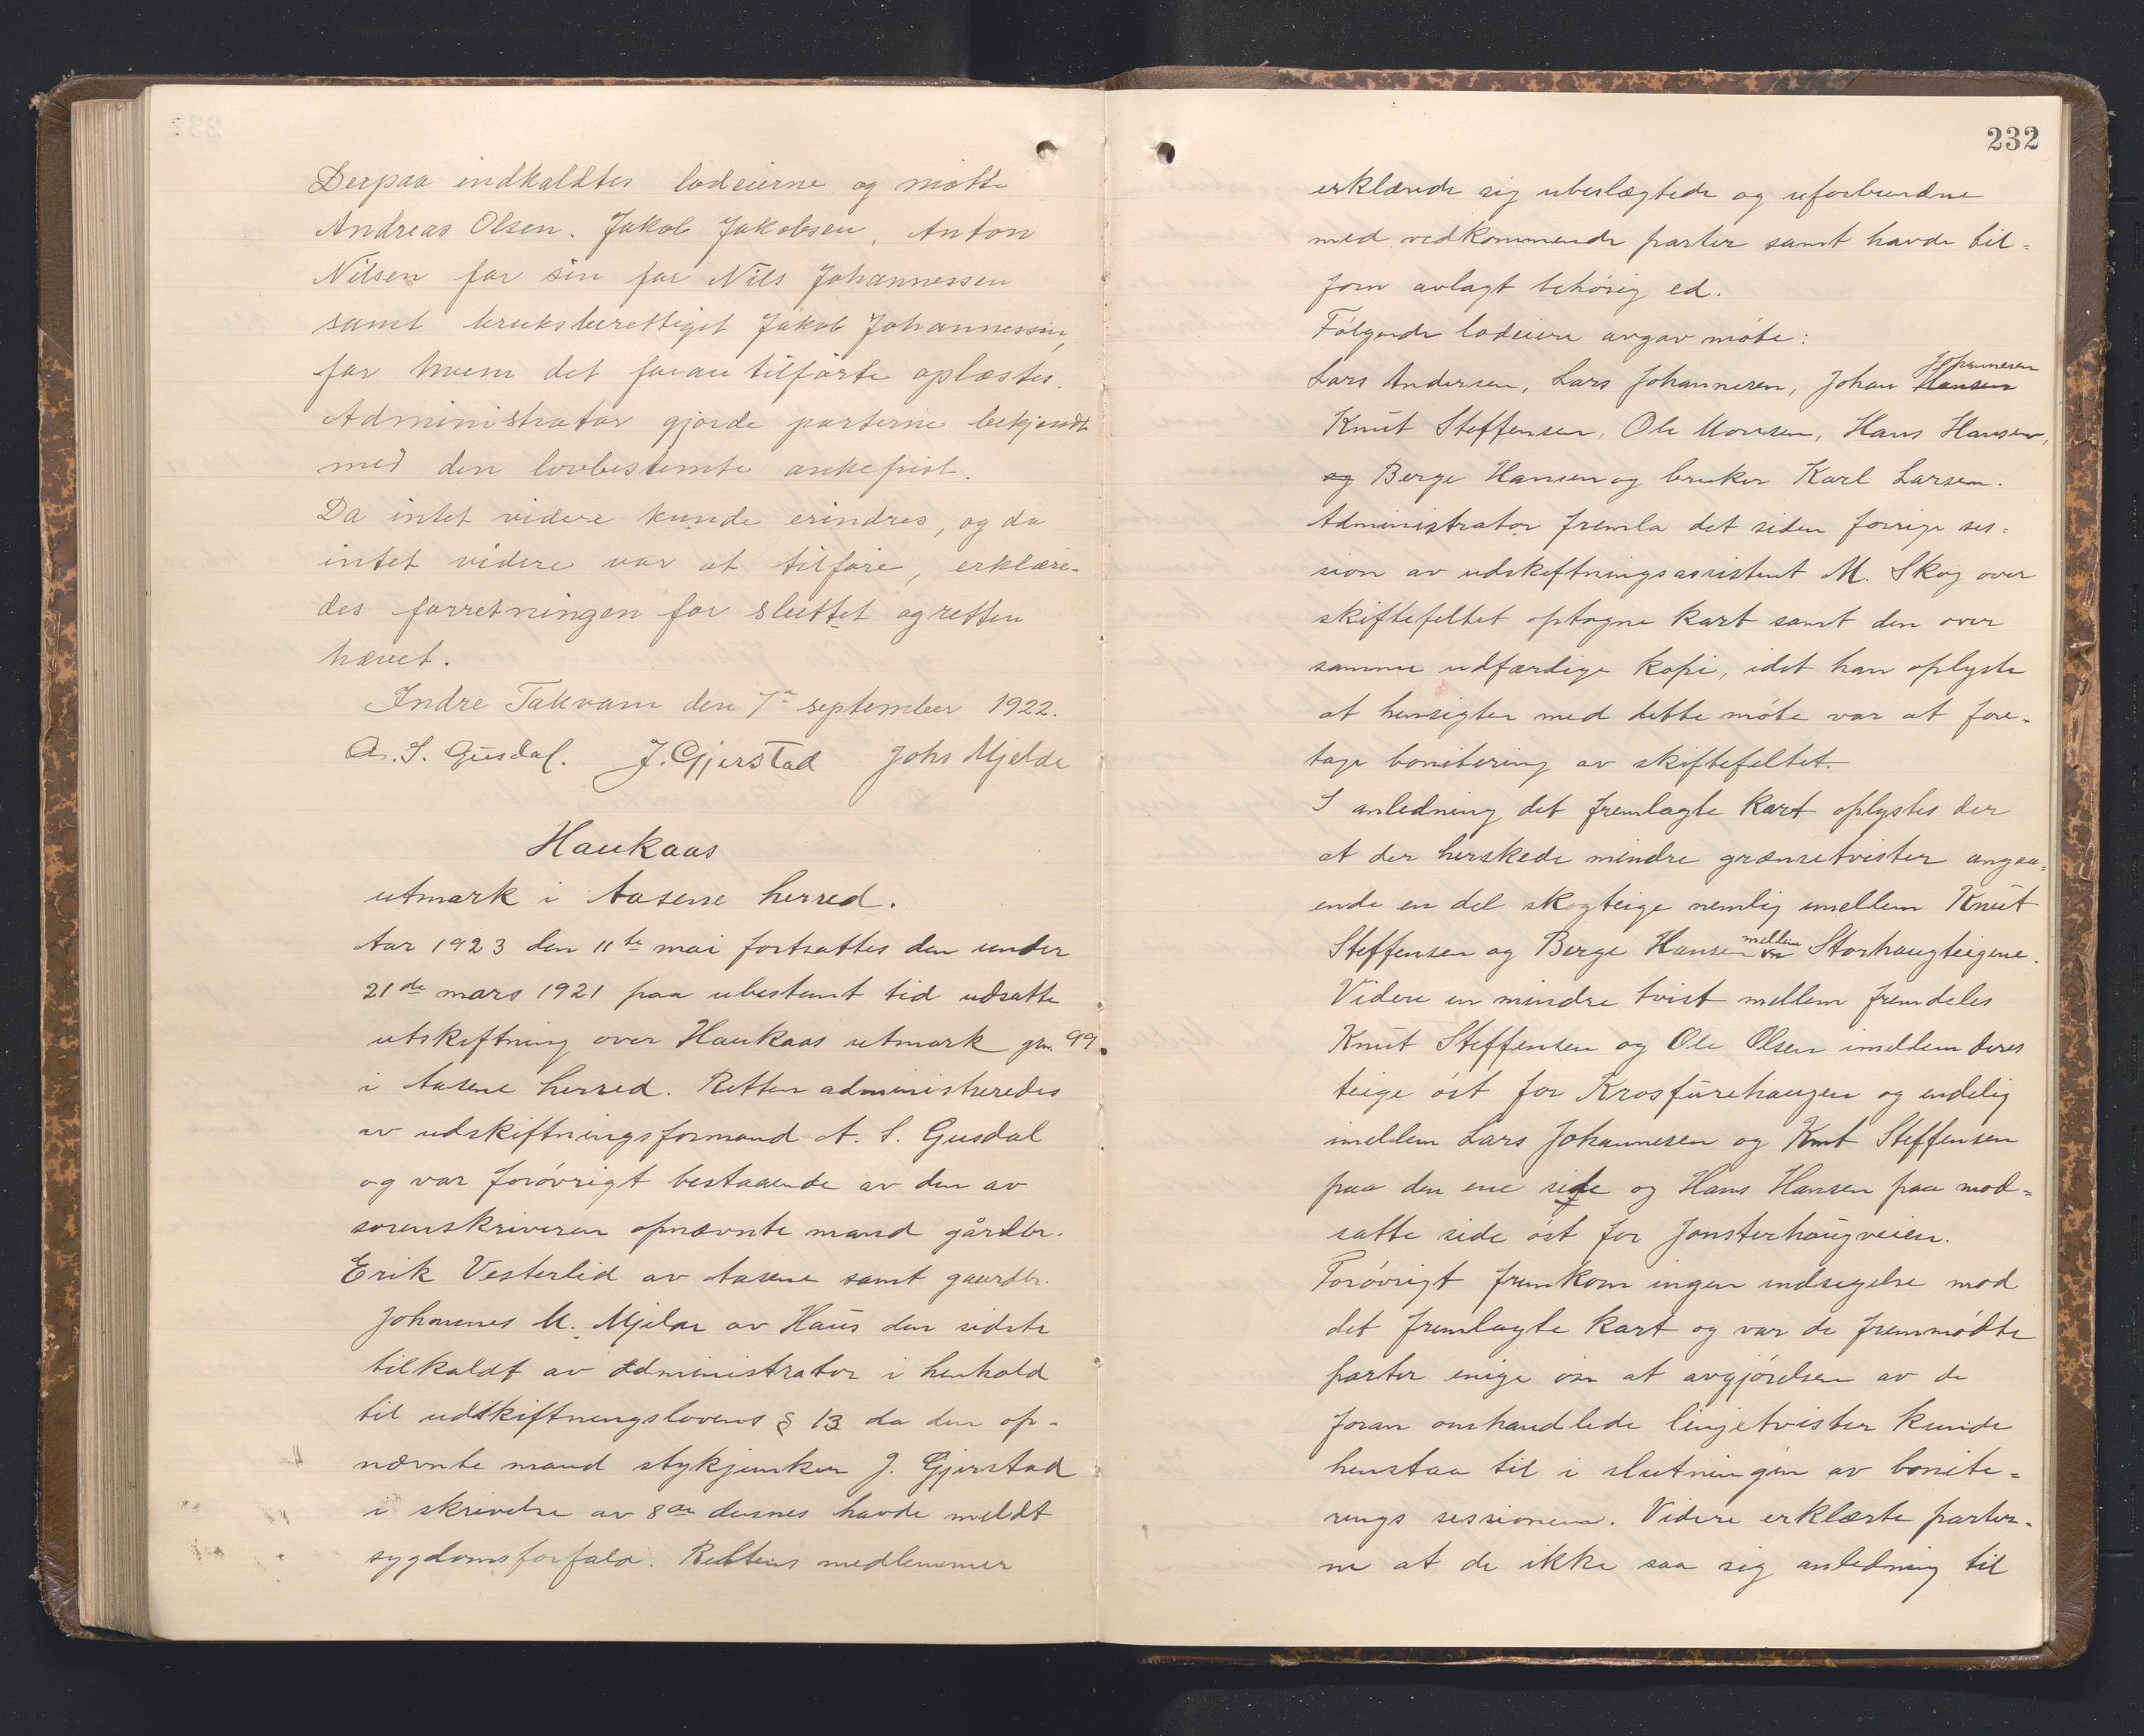 Derpaa indkaldtes lodeierne og møtte
Andreas Olsen. Jakob Jakobsen, Anton
Nilsen for sin far Nils Johannessen
samt bruksberettiget Jakob Johannessen,
for hvem det foran tilførte oplæstes.
Administrator gjorde parterne bekjendt
med den lovbestemte ankefrist.
Da intet videre kunde erindres, og da
intet videre var at tilføre, erklære-
des forretningen for sluttet og retten
hævet.
Indre Takvam den 7de september 1922.
A. S. Gusdal. J. Gjerstad Johs Mjelde
Haukaas
utmark i Aasene herred.
Aar 1923 den 11te mai fortsattes den under
21de mars 1921 paa ubestemt tid udsatte
utskiftning over Haukaas utmark gnr. 99
i Aasene herred. Retten administreredes
av udskiftningsformand A. S. Gusdal
og var forøvrigt bestaaende av den av
sorenskriveren opnævnte mand gårdbr.
Erik Vesterlid av Aasene samt gaardbr.
Johannes M. Mjelde av Haus den sidste
tilkaldt av administrator i henhold
til udskiftningslovens § 13 da den op-
nævnte mand stykjunker J. Gjerstad
i skrivelse av 8de dennes havde meldt
sygdomsforfald. Rettens medlemmer
232
erklærede sig ubeslægtede og uforbundne
med vedkommende parter samt havde til-
forn avlagt behørig ed.
Følgende lodeiere avgav møte:
Lars Andersen, Lars Johannesen, Johan Hansen Johannesen
Knut Steffensen, Ole Monsen, Hans Hansen,
og Berge Hansen og bruker Karl Larsen.
Administrator fremla det siden forrige ses-
sion av udskiftningsassistent M. Skog over
skiftefeltet optagne kart samt den over
samme udfærdige kopi, idet han oplyste
at hensigten med dette møte var at fore-
tage bonitering av skiftefeltet.
I anledning det fremlagte kart oplystes der
at der herskede mindre grænsetvister angaa-
ende en del skogteige nemlig imellem Knut
Steffensen og Berge Hansen mellem Storhaugteigene.
Videre en mindre tvist mellem fremdeles
Knut Steffensen og Ole Olsen imellem deres
teige øst for Krosfurehaugen og endelig
imellem Lars Johannesen og Knut Steffensen
paa den ene side og Hans Hansen paa mod-
satte side øst for Jonsterhaugveien.
Forøvrigt fremkom ingen indsigelse mod
det fremlagte kart og var de fremmødte
parter enige om at avgjørelsen av de
foran omhandlede linjetvister kunde
henstaa til i slutningen av bonite-
rings sessionen. Videre erklærte parter-
ne at de ikke saa sig anledning til